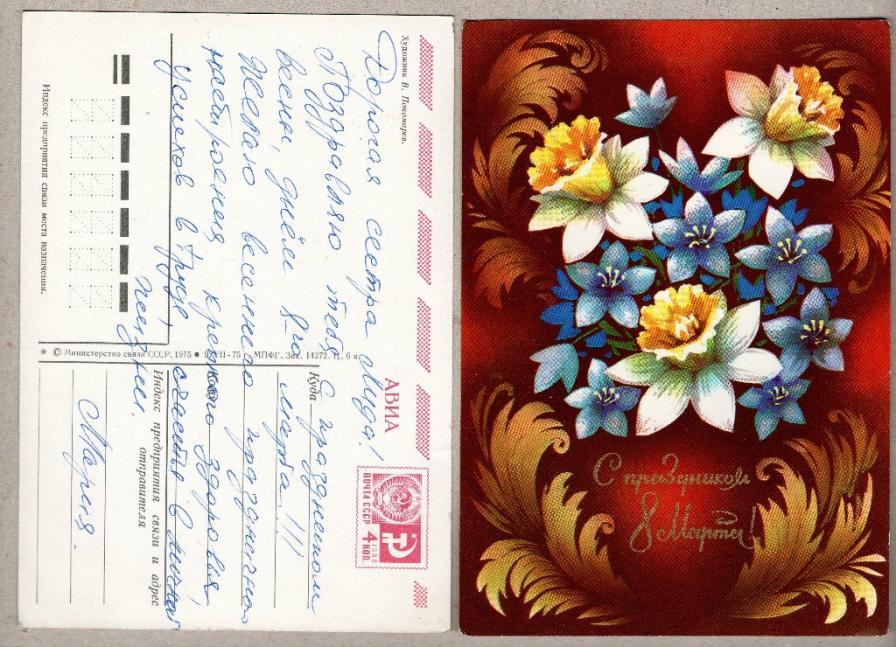 Художник В. Пономарев.
АВИА
ПОЧТА СССР
1966
4 КОП.
Дорогая сестра Лида!
Поздравляю тебя с праздником
весны, днём 8-го марта!!!
Желаю весеннего праздничного
настроения, крепкого здоровья
успехов в труде, счастья в личной
жизни.
Мария.
Куда
Индекс предприятия связи и адрес
отправителя
Индекс предприятия связи места назначения.
* © Министерство связи СССР, 1975 ● МПФГ. Зак. 14272. Ц. 6 к.
С праздником
8 Марта!